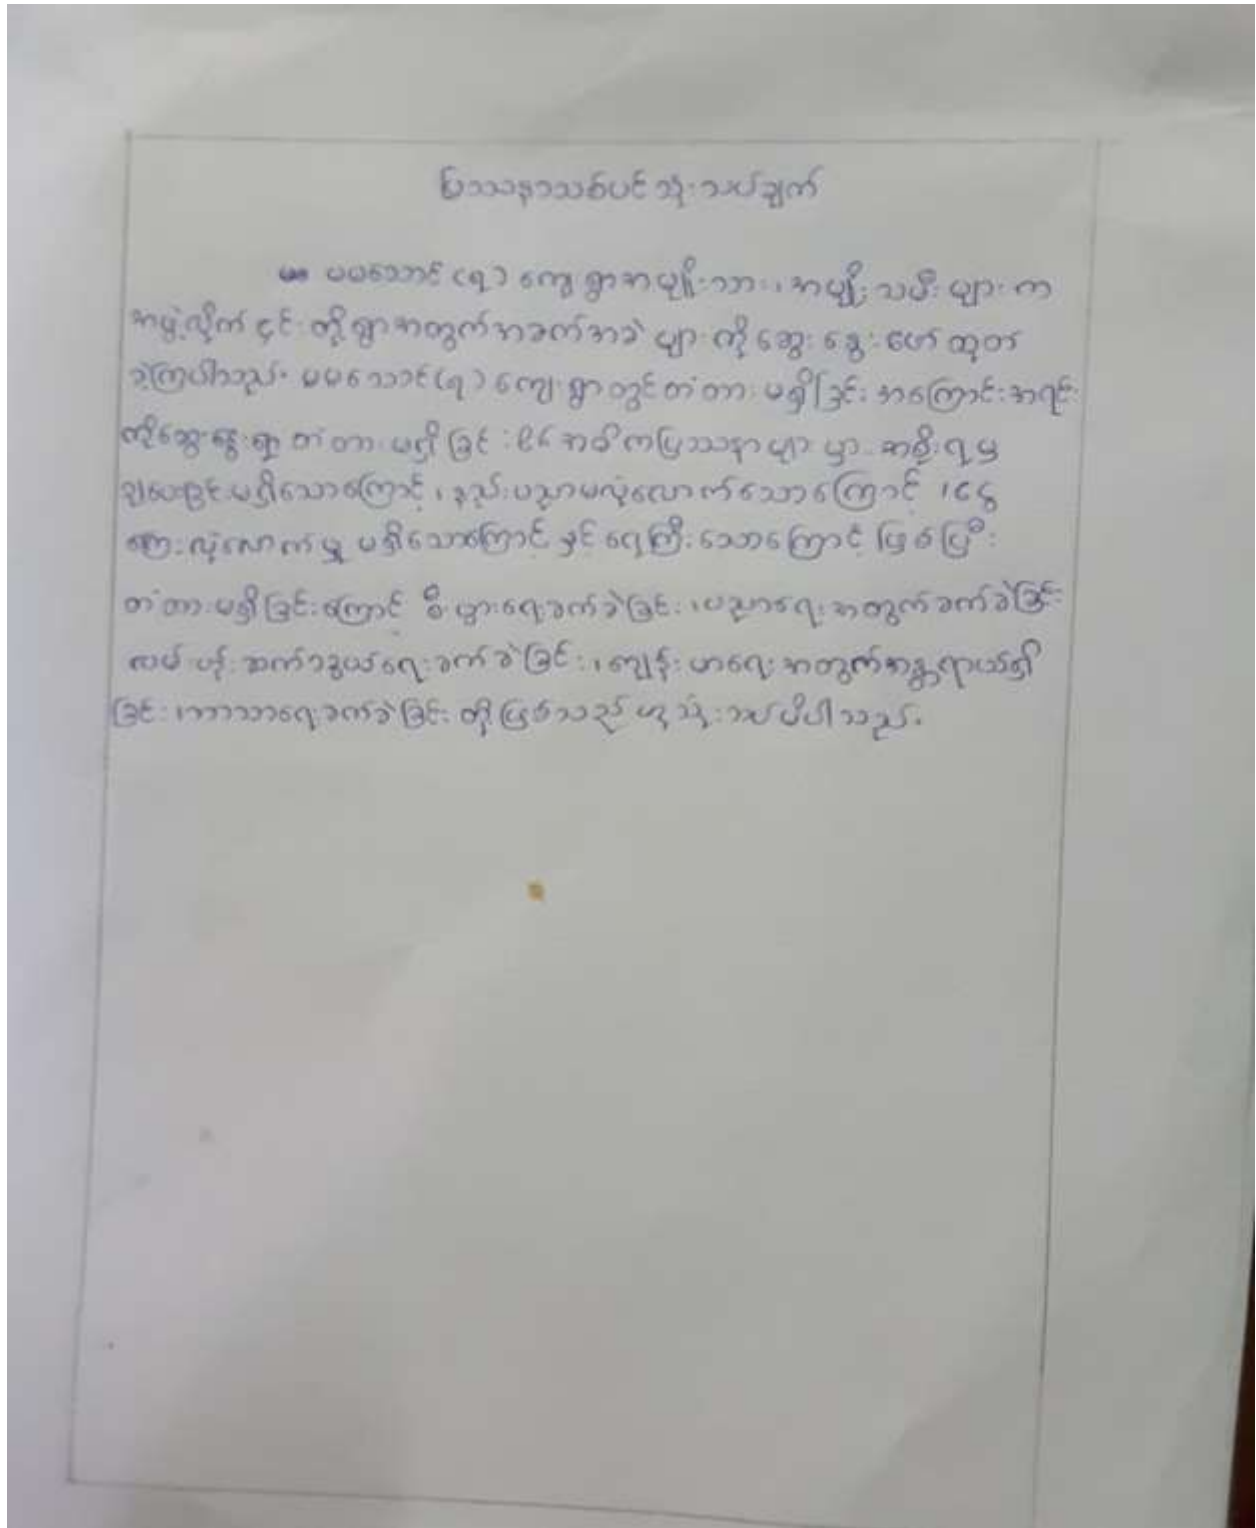 ပြဿနာသစ်ပင် သုံးသပ်ချက်
မမသောင် (ရ) ကျေးရွာအမျိုးသား၊ အမျိုးသမီးများက
အဖွဲ့လိုက် ၎င်းတို့ရွာအတွက်အခက်အခဲများကို ဆွေးနွေးဖော်ထုတ်
ခဲ့ကြပါသည်။ မမသောင်(ရ) ကျေးရွာတွင်တံတားမရှိခြင်း အကြောင်းအရင်း
ကိုဆွေးနွေးရာ တံတားမရှိခြင်း၏ အဓိကပြဿနာများမှာ အစိုးရမှ
ချပေးခြင်းမရှိသောကြောင့်၊ နည်းပညာမလုံလောက်သောကြောင့်၊ ငွေ
ကြေးလုံလောက်မှု မရှိသောကြောင့် နှင့် ရေကြီးသောကြောင့် ဖြစ်ပြီး
တံတားမရှိခြင်းကြောင့် စီးပွားရေးခက်ခဲခြင်း၊ ပညာရေးအတွက်ခက်ခဲခြင်း
လမ်းပန်းဆက်သွယ်ရေးခက်ခဲခြင်း၊ ကျန်းမာရေးအတွက်အန္တရာယ်ရှိ
ခြင်း၊ ဘာသာရေးခက်ခဲခြင်း တို့ဖြစ်သည်ဟု သုံးသပ်မိပါသည်။